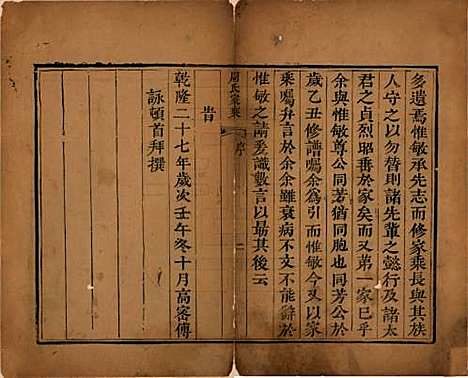 多遺焉惟敏承先志而修家乘長與其族
人守之以勿替則諸先輩之懿行及諸太
君之貞烈昭垂於家矣而又第一家已乎
余與惟敏尊公同芳猶同胞也同芳公於
歲乙丑修譜囑余為引而惟敏今又以家
乘囑弁言於余余雖衰病不文不能辭於
惟敏之請爰識數言以勗其後云
旹
周氏家乘 序 二
乾隆二十七年歲次壬午冬十月高密傅
詠頓首拜撰